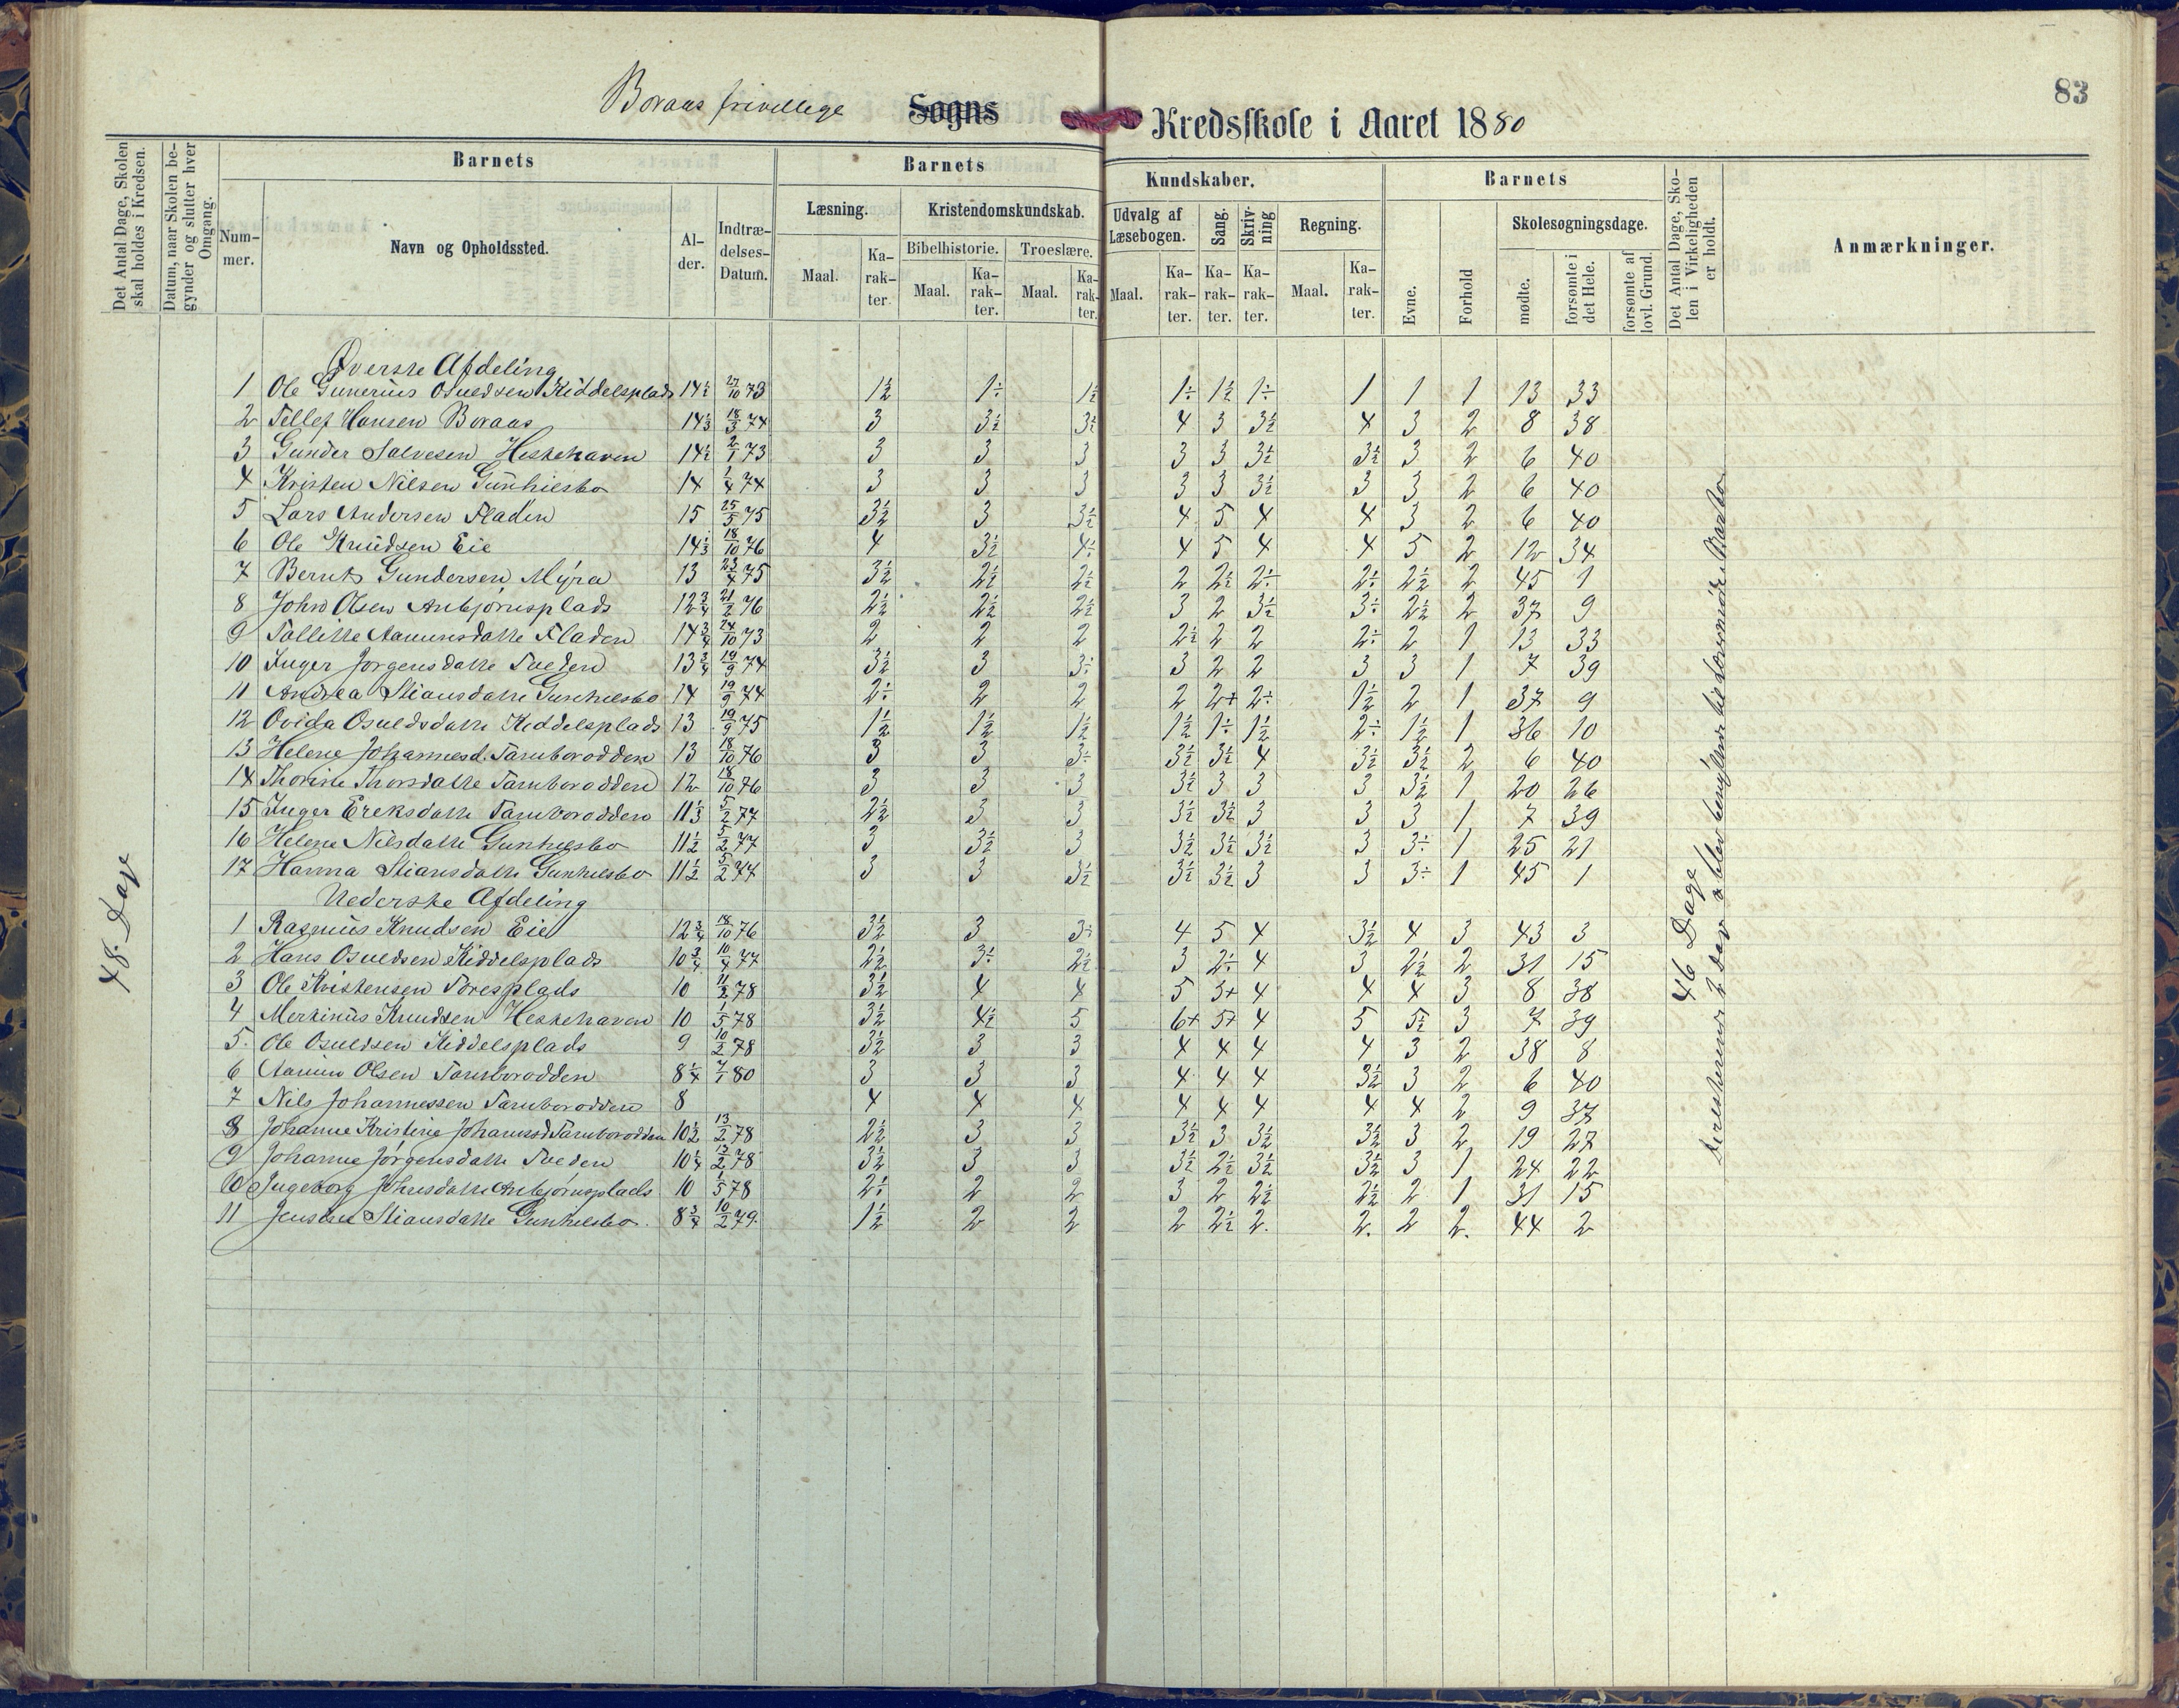 83
Boraas frivillige Sogns Kredsskole i Aaret 1880
Det Antal Dage, Skolen skal holdes i Kredsen.
Datum, naar Skolen begynder og slutter hver Omgang.
Barnets
Nummer.
Navn og Opholdssted.
Alder.
Indtrædelses-Datum.
Barnets Kundskaber.
Læsning.
Maal. Karakter.
Kristendomskundskab.
Bibelhistorie. Troeslære.
Maal. Karakter. Maal. Karakter.
Udvalg af Læsebogen. Sang. Skrivning Regning.
Maal. Karakter. Karakter. Karakter. Maal. Karakter.
Barnets
Evne. Forhold
Skolesøgningsdage.
mødte. forsømte i det Hele. forsømte af lovl. Grund.
Det Antal Dage, Skolen i Virkeligheden er holdt.
Anmærkninger.
48. Dage
46 Dage
Øverste Afdeling
1 Ole Gunerius Osuldsen Kiddelsplads 14½ 27/10 73 1½ 1÷ 1½ 1÷ 1½ 1÷ 1 1 1 13 33
2 Tellef Hansen Boraas 14⅓ 18/3 74 3 3½ 3½ 4 3 3½ 4 3 2 8 38
3 Gunder Salvesen Heskehaven 14½ 2/1 73 3 3 3 3 3 3½ 3½ 3 2 6 40
4 Kristen Nilsen Gunhilsbo 14 2/4 74 3 3 3 3 3 3½ 3 3 2 6 40
5 Lars Andersen Fladen 15 25/5 75 3½ 3 3½ 4 5 4 4 3 2 6 40
6 Ole Knudsen Eie 14⅓ 18/10 76 4 3½ 4÷ 4 5 4 4 5 2 12 34
7 Bernt Gundersen Myra 13 23/4 75 3½ 2½ 2½ 2 2½ 2÷ 2÷ 2½ 2 45 1
8 John Olsen Anbjørnsplads 12¾ 21/2 76 2½ 2½ 2½ 3 2 3½ 3÷ 2½ 2 37 9
9 Tallitte Aamunsdatte Fladen 14¾ 24/10 73 2 2 2 2½ 2 2 2÷ 2 1 13 33
10 Inger Jørgensdatte Sveden 13¾ 19/9 74 3½ 3 3÷ 3 2 2 3 3 1 7 39
11 Andrea Stiansdatte Gunhilsbo 14 19/9 74 2÷ 2 2 2 2+ 2÷ 1½ 2 1 37 9
12 Ovida Osuldsdatte Kiddelsplads 13 19/9 75 1½ 1½ 1½ 1½ 1÷ 1½ 2÷ 1½ 1 36 10
13 Helene Johannesd. Tamborodden 13 18/10 76 3 3 3÷ 3½ 3½ 4 3½ 3½ 2 6 40
14 Thorine Thorsdatte Tamborodden 12 18/10 76 3 3 3 3½ 3 3 3 3½ 1 20 26
15 Inger Ereksdatte Tamborodden 11⅓ 5/2 77 2½ 3 3 3½ 3½ 3 3 3 1 7 39
16 Helene Nilsdatte Gunhilsbo 11½ 5/2 77 3 3½ 3 3½ 3½ 3½ 3 3÷ 1 25 21
17 Hanna Stiansdatte Gunhilsbo 11½ 5/2 77 3 3 3½ 3½ 3½ 3 3 3÷ 1 45 1
Nederste Afdeling
1 Rasmus Knudsen Eie 12¾ 18/10 76 3½ 3 3÷ 4 5 4 3½ 4 3 43 3
2 Hans Osuldsen Kiddelsplads 10¾ 10/4 77 2½ 3÷ 2½ 3 2÷ 4 3 2½ 2 31 15
3 Ole Kristensen Toresplads 10 11/2 78 3½ 4 4 5 3+ 4 4 4 3 8 38
4 Merkinius Knudsen Heskehaven 10 1/5 78 3½ 4½ 5 6+ 5+ 4 5 5½ 3 7 39
5. Ole Osuldsen Kiddelsplads 9 10/2 78 3½ 3 3 4 4 4 4 3 2 38 8
6 Aanun Olsen Tamborodden 8¼ 7/1 80 3 3 3 4 4 4 3½ 3 2 6 40
7 Nils Johannessen Tamborodden 8 4 4 4 4 4 4 4 4 2 9 37
8 Johanne Kristine Johannsd Tamborodden 10½ 13/2 78 2½ 3 3 3½ 3 3½ 3½ 3 2 19 27
9 Johanne Jørgensdatte Sveden 10¼ 13/2 78 3½ 3 3 3½ 2½ 3½ 3½ 3 1 24 22
10 Ingeborg Johnsdatte Anbjørnsplads 10 1/5 78 2÷ 2 2 3 2 2½ 2½ 2 1 31 15
11 Stiansdatte Gunhilsbo. 8¾ 10/2 79. 1½ 2 2 2 2½ 2. 2. 2 2. 44 2